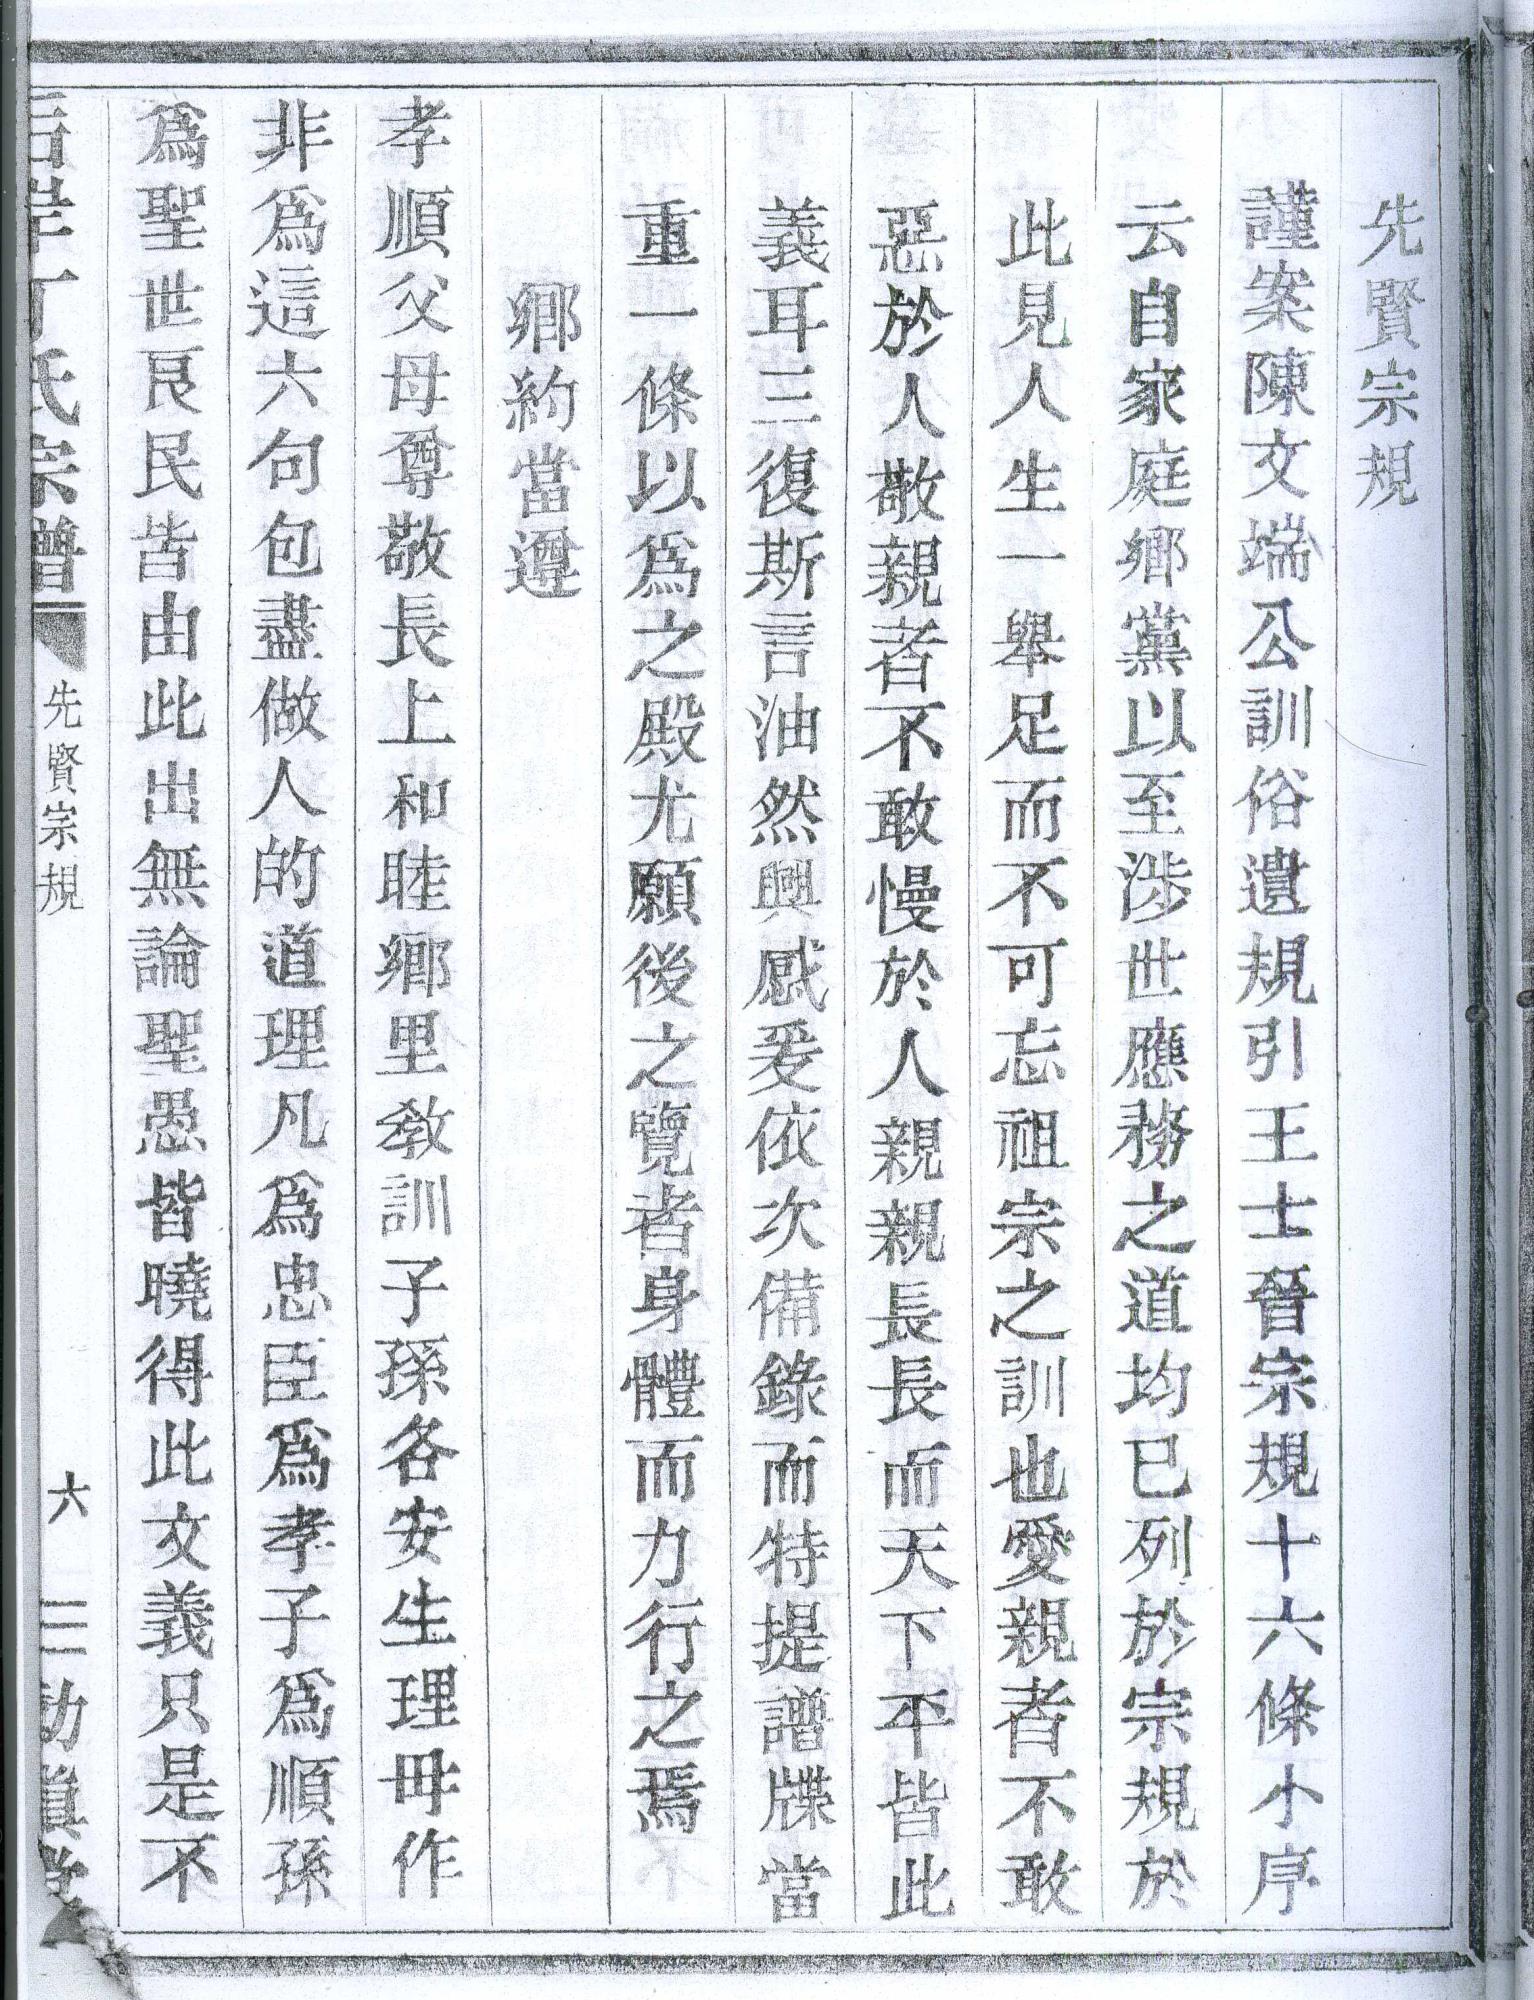 先賢宗規
謹案陳文端公訓俗遺規引王士晉宗規十六條小序
云自家庭鄉黨以至涉世應務之道均已列於宗規於
此見人生一舉足而不可忘祖宗之訓也愛親者不敢
惡於人敬親者不敢慢於人親親長長而天下平皆此
義耳三復斯言油然興感爰依次備錄而特提譜牒當
重一條以爲之殿尤願後之覽者身體而力行之焉
鄉約當遵
孝順父母尊敬長上和睦鄉里敎訓子孫各安生理毋作
非爲這六句包盡做人的道理凡爲忠臣爲孝子爲順孫
爲聖世良民皆由此出無論聖愚皆曉得此文義只是不
丁氏宗譜 先賢宗規 六